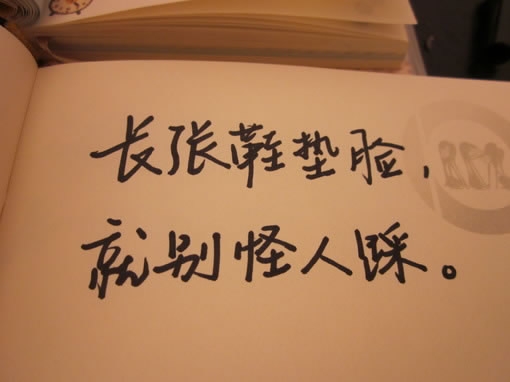 长张鞋垫脸，
就别怪人踩。